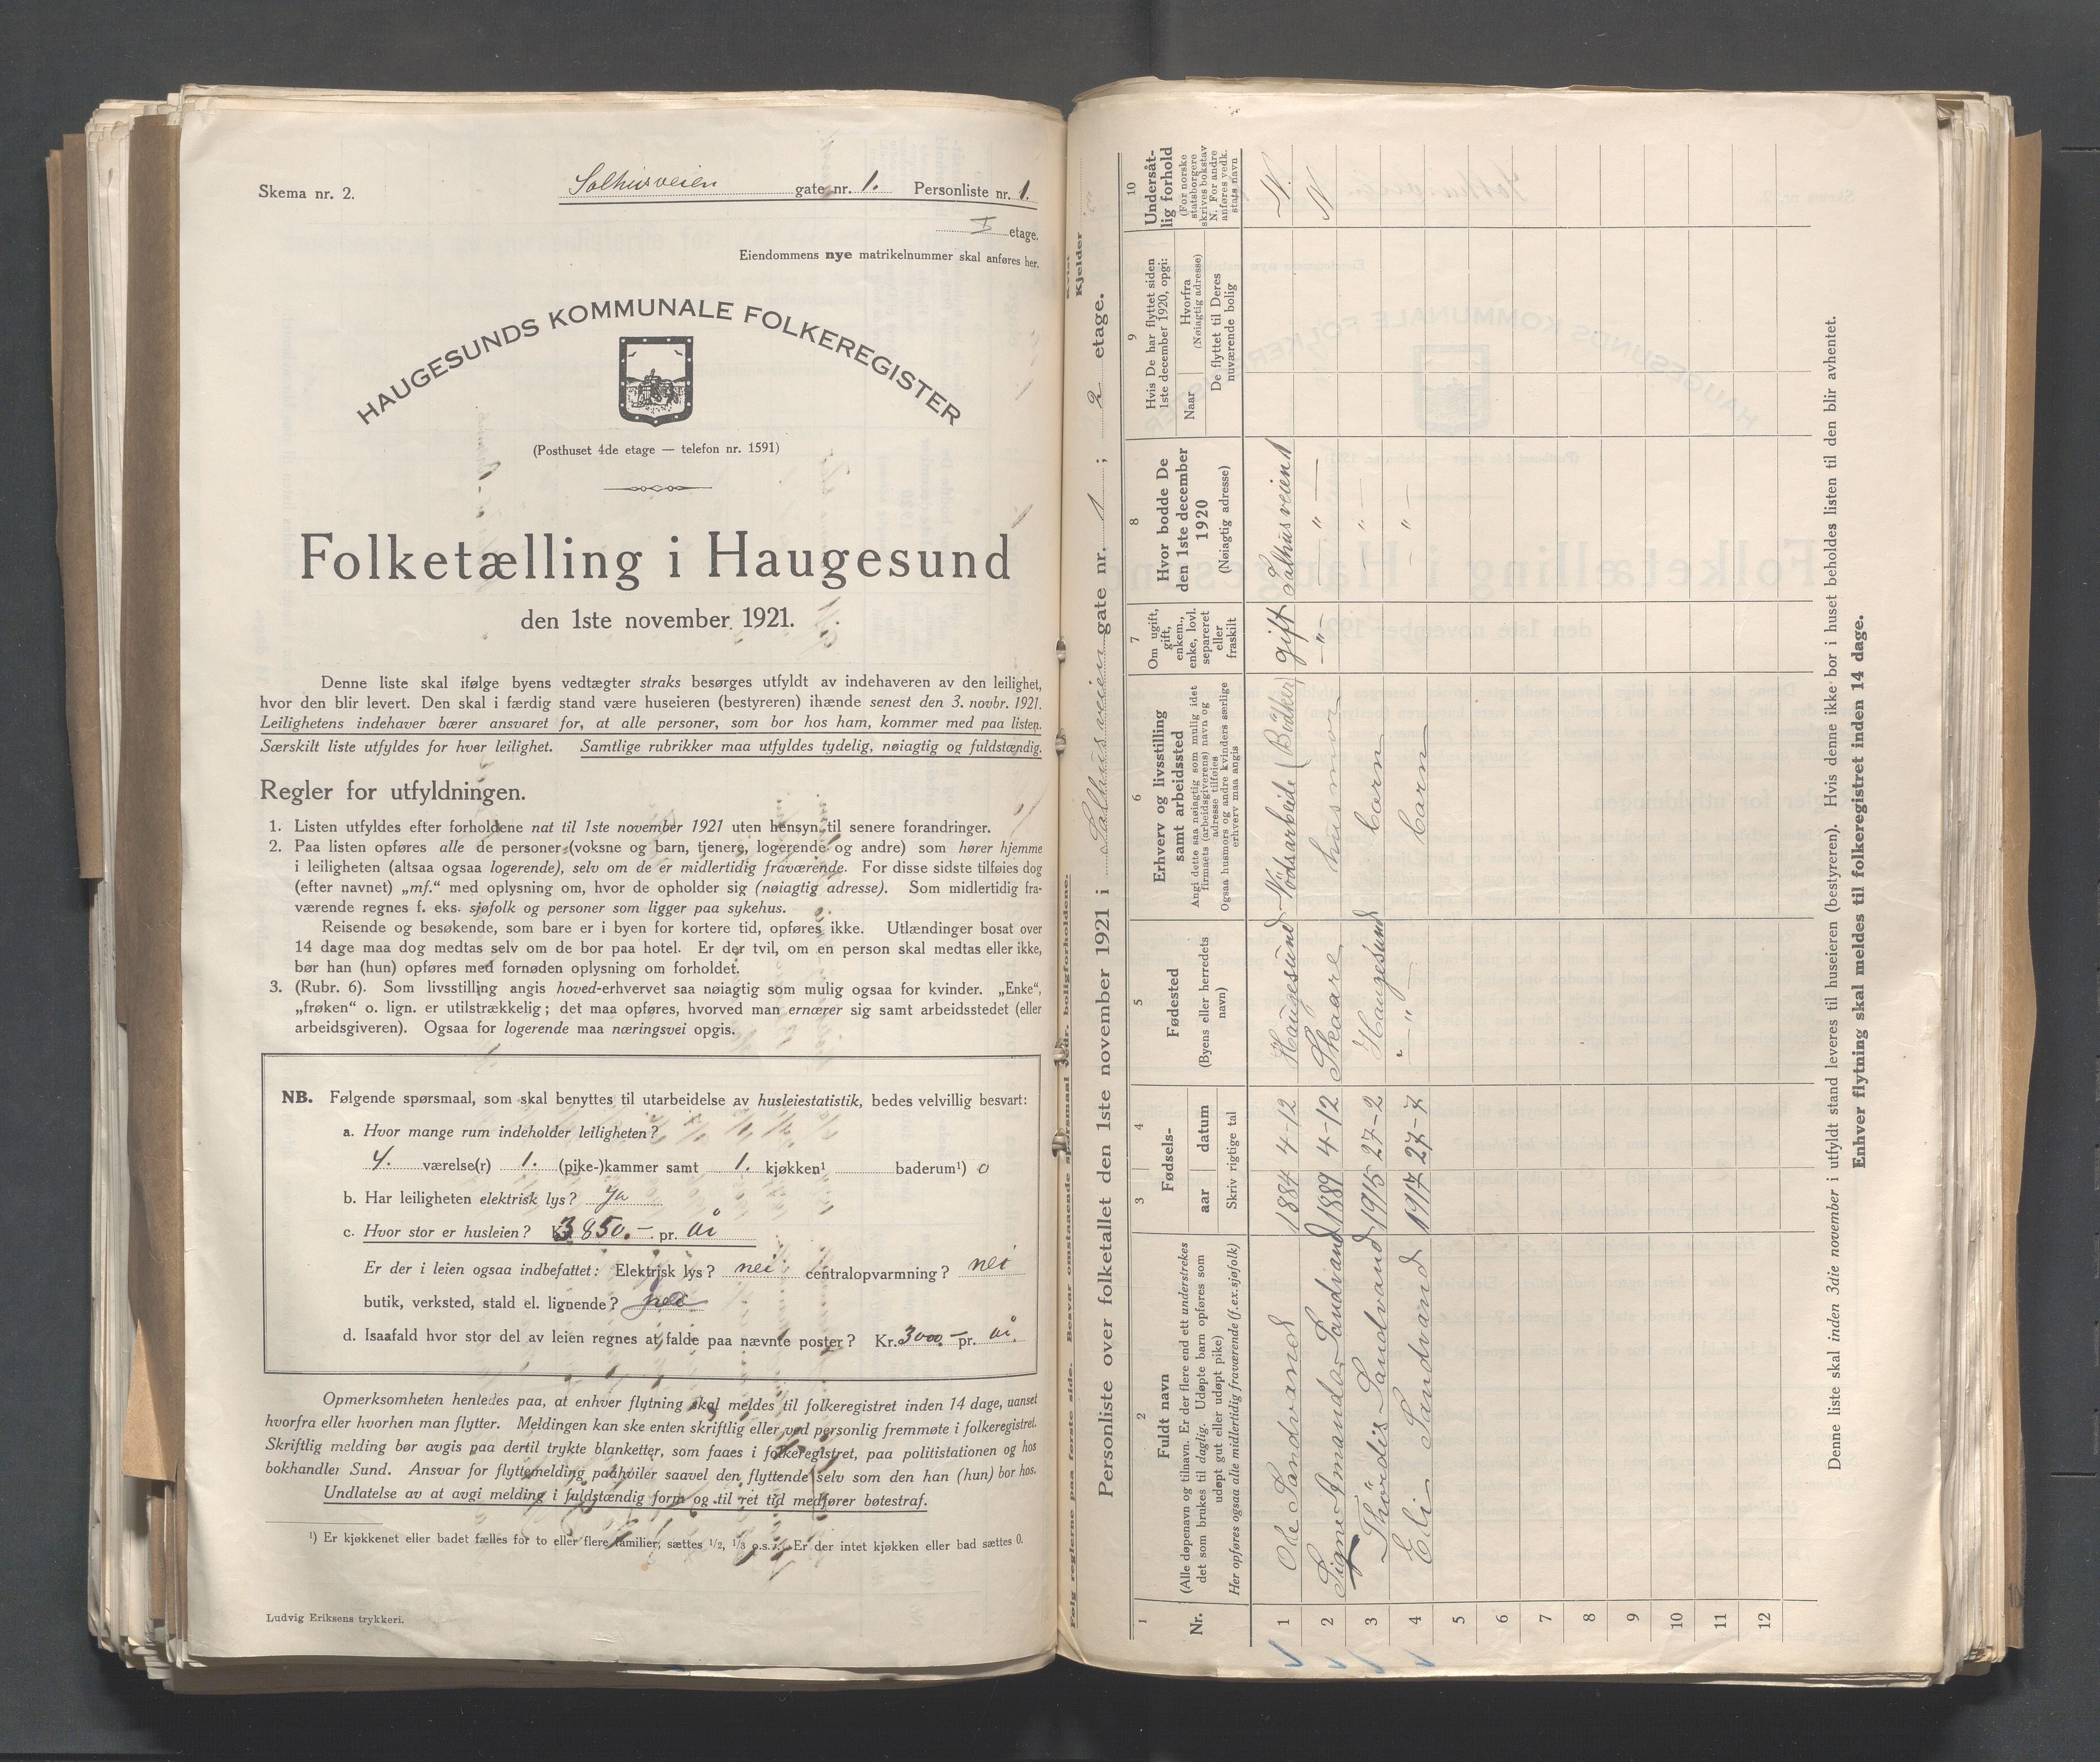 Skema nr. 2.
Salhusveien gate nr. 1. Personliste nr. 1.
I etage.
Eiendommens nye matrikelnummer skal anføres her.
HAUGESUNDS KOMMUNALE FOLKEREGISTER
(Posthuset 4de etage — telefon nr. 1591)
Folketælling i Haugesund
den 1ste november 1921.
Denne liste skal ifølge byens vedtægter straks besørges utfyldt av indehaveren av den leilighet,
hvor den blir levert. Den skal i færdig stand være huseieren (bestyreren) ihænde senest den 3. novbr. 1921.
Leilighetens indehaver bærer ansvaret for, at alle personer, som bor hos ham, kommer med paa listen.
Særskilt liste utfyldes for hver leilighet. Samtlige rubrikker maa utfyldes tydelig, nøiagtig og fuldstændig.
Regler for utfyldningen.
1. Listen utfyldes efter forholdene nat til 1ste november 1921 uten hensyn til senere forandringer.
2. Paa listen opføres alle de personer (voksne og barn, tjenere, logerende og andre) som hører hjemme
i leiligheten (altsaa ogsaa logerende), selv om de er midlertidig fraværende. For disse sidste tilføies dog
(efter navnet) „mf.“ med oplysning om, hvor de opholder sig (nøiagtig adresse). Som midlertidig fra-
værende regnes f. eks. sjøfolk og personer som ligger paa sykehus.
Reisende og besøkende, som bare er i byen for kortere tid, opføres ikke. Utlændinger bosat over
14 dage maa dog medtas selv om de bor paa hotel. Er der tvil, om en person skal medtas eller ikke,
bør han (hun) opføres med fornøden oplysning om forholdet.
3. (Rubr. 6). Som livsstilling angis hoved-erhvervet saa nøiagtig som mulig ogsaa for kvinder. „Enke“,
„frøken“ o. lign. er utilstrækkelig; det maa opføres, hvorved man ernærer sig samt arbeidsstedet (eller
arbeidsgiveren). Ogsaa for logerende maa næringsvei opgis.
NB. Følgende spørsmaal, som skal benyttes til utarbeidelse av husleiestatistik, bedes velvillig besvart:
a. Hvor mange rum indeholder leiligheten?
4. værelse(r) 1. (pike-)kammer samt 1. kjøkken¹ baderum¹) 0
b. Har leiligheten elektrisk lys? Ja
c. Hvor stor er husleien? Kr. 3850.— pr. år
Er der i leien ogsaa indbefattet: Elektrisk lys? nei centralopvarmning? nei
butik, verksted, stald el. lignende? nei
d. Isaafald hvor stor del av leien regnes at falde paa nævnte poster? Kr. 3000.— pr. år.
Opmerksomheten henledes paa, at enhver flytning skal meldes til folkeregistret inden 14 dage, uanset
hvorfra eller hvorhen man flytter. Meldingen kan ske enten skriftlig eller ved personlig fremmøte i folkeregistret.
Skriftlig melding bør avgis paa dertil trykte blanketter, som faaes i folkeregistret, paa politistationen og hos
bokhandler Sund. Ansvar for flyttemelding paahviler saavel den flyttende selv som den han (hun) bor hos.
Undlatelse av at avgi melding i fuldstændig form og til ret tid medfører bøtestraf.
¹) Er kjøkkenet eller badet fælles for to eller flere familier, sættes 1/2, 1/3 o.s.v. Er der intet kjøkken eller bad sættes 0.
Ludvig Eriksens trykkeri.
Følg reglerne paa første side. Besvar omstaaende spørsmaal vedr. boligforholdene.
Kvist
Kjelder
Personliste over folketallet den 1ste november 1921 i Salhusveien gate nr. 1; 2 etage.
1 2 3 4 5 6 7 8 9 10
Nr.
Fuldt navn
(Alle døpenavn og tilnavn. Er der flere end ett understrekes
det som brukes til daglig. Udøpte barn opføres som
udøpt gut eller udøpt pike)
Her opføres ogsaa alle midlertidig fraværende (f.ex. sjøfolk)
Fødsels-
aar datum
Skriv rigtige tal
Fødested
(Byens eller herredets
navn)
Erhverv og livsstilling
samt arbeidssted
Angi dette saa nøiagtig som mulig idet
firmaets (arbeidsgiverens) navn og
adresse tilføies
Ogsaa husmors og andre kvinders særlige
erhverv maa angis
Om ugift,
gift,
enkem.,
enke, lovl.
separeret
eller
fraskilt
Hvor bodde De
den 1ste december
1920
(Nøiagtig adresse)
Hvis De har flyttet siden
1ste december 1920, opgi:
Naar
Hvorfra
(Nøiagtig adresse)
De flyttet til Deres
nuværende bolig
Undersåt-
lig forhold
(For norske
statsborgere
skrives bokstav
N. For andre
anføres vedk.
stats navn
1 Ole Sandvand 1884 4-12 Haugesund Nödsarbeide (Bödker) gift Salhusveien 1 N.
2 Signe Amanda Sandvand 1889 4-12 Skaare husmor —"— —"— N
3 Thördis Sandvand 1915 27-2 Haugesund barn —"—
4 Eli Sandvand 1917 27-7 —"— barn —"—
5
6
7
8
9
10
11
12
Denne liste skal inden 3die november i utfyldt stand leveres til huseieren (bestyreren). Hvis denne ikke bor i huset beholdes listen til den blir avhentet.
Enhver flytning skal meldes til folkeregistret inden 14 dage.